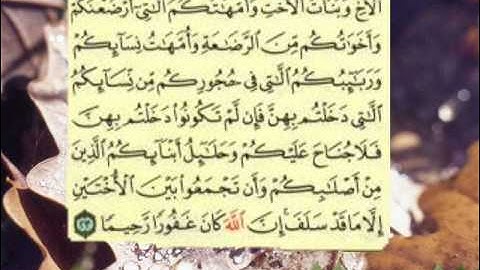 الْأَخِ وَبَنَاتُ الْأُخْتِ وَأُمَّهَاتُكُمُ الَّاتِي أَرْضَعْنَكُمْ
وَأَخَوَاتُكُم مِّنَ الرَّضَاعَةِ وَأُمَّهَاتُ نِسَائِكُمْ
وَرَبَائِبُكُمُ الَّاتِي فِي حُجُورِكُم مِّن نِّسَائِكُمُ
الَّاتِي دَخَلْتُم بِهِنَّ فَإِن لَّمْ تَكُونُوا دَخَلْتُم بِهِنَّ
فَلَا جُنَاحَ عَلَيْكُمْ وَحَلَائِلُ أَبْنَائِكُمُ الَّذِينَ
مِنْ أَصْلَابِكُمْ وَأَن تَجْمَعُوا بَيْنَ الْأُخْتَيْنِ
إِلَّا مَا قَدْ سَلَفَ ۗ إِنَّ اللَّهَ كَانَ غَفُورًا رَّحِيمًا ٢٣